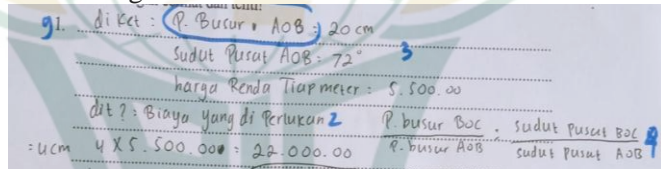 91. diket : P. Busur AOB : 20 cm
Sudut Pusat AOB : 72° 3
harga Renda Tiap meter : 5.500.00
dit? : Biaya yang di Perlukan 2 P. busur BOC : sudut pusat BOC
P. busur AOB sudut pusat AOB
: 4cm 4 X 5.500.00 : 22.000.00